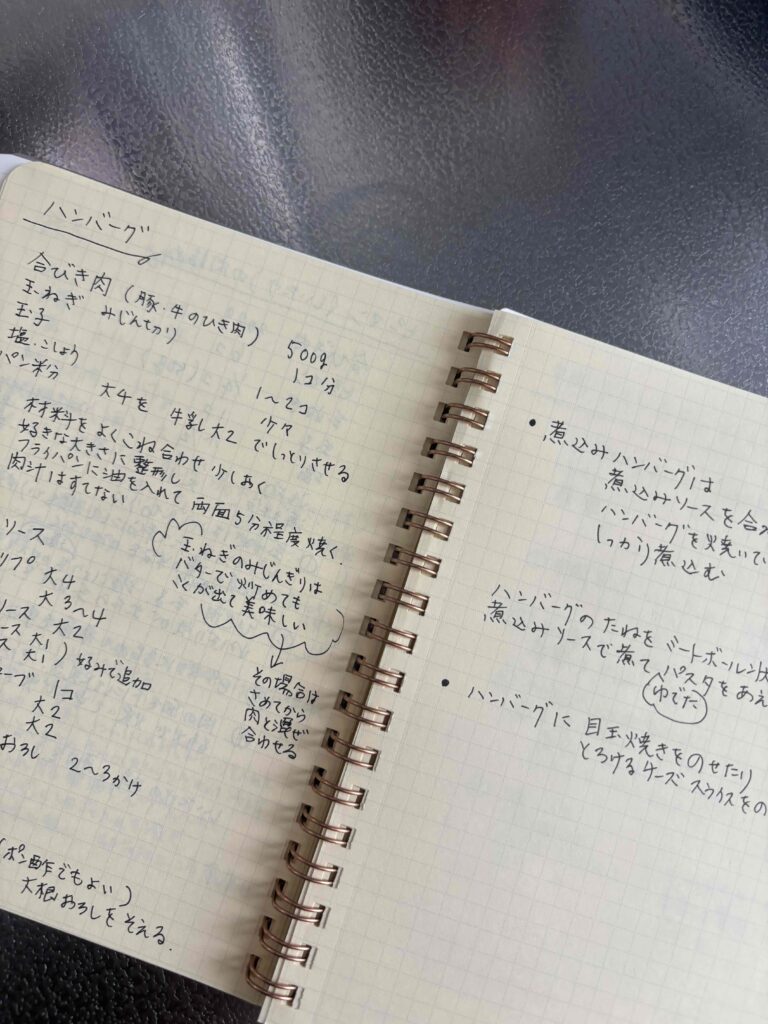 ハンバーグ
合びき肉 (豚・牛のひき肉) 500g
玉ねぎ みじん切り 1コ分
玉子 1〜2コ
塩・こしょう 少々
パン粉 大4を 牛乳大2 でしっとりさせる
材料をよくこね合わせ 少しおく
好きな大きさに整形し
フライパンに油を入れて 両面5分程度焼く.
肉汁はすてない
玉ねぎのみじんぎりは
バターで炒めても
こくが出て美味しい
その場合は
さめてから
肉と混ぜ
合わせる
ソース
大4
大3〜4
ソース 大2
ース 大1
ス 大1 ) 好みで追加
ーブ 1コ
大2
大2
おろし 2〜3かけ
(ポン酢でもよい)
大根おろしをそえる.
• 煮込みハンバーグは
煮込みソースを合
ハンバーグを焼いて
しっかり煮込む
ハンバーグのたねを ミートボール
煮込みソースで煮て パスタをあえ
ゆでた
• ハンバーグに 目玉焼きをのせたり
とろけるチーズ スライスをの